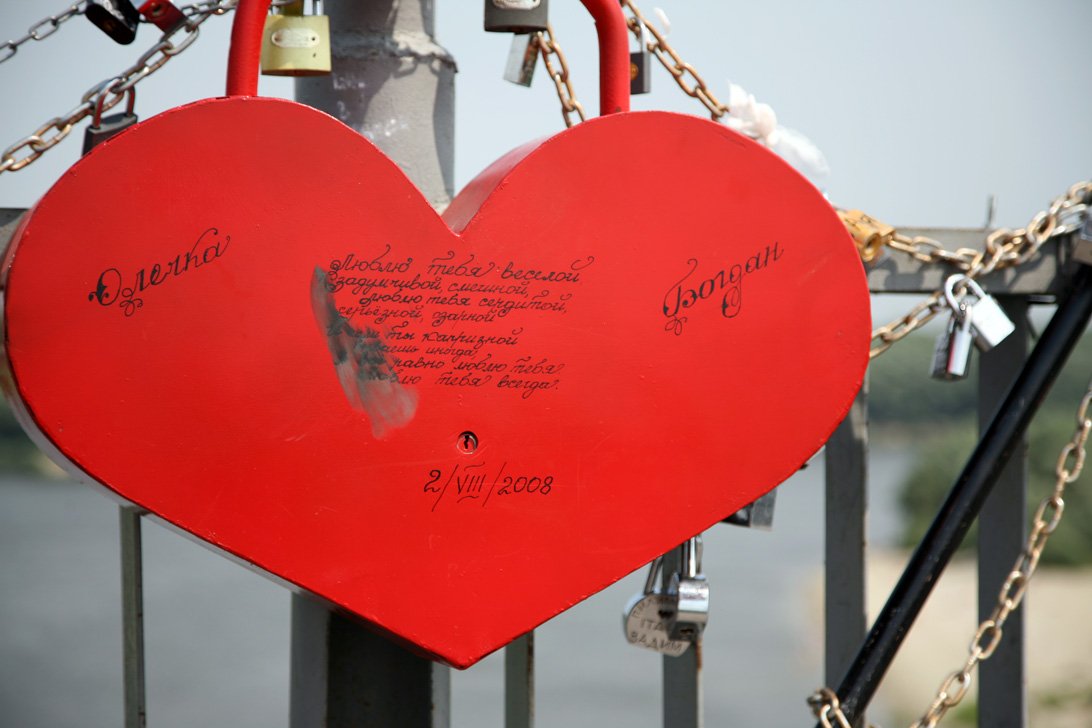 Олечка
Люблю тебя веселой
задумчивой, смешной,
люблю тебя сердитой,
серьёзной, озорной
ты капризной
иногда,
равно люблю тебя
тебя всегда.
Богдан
2/VIII/2008
ВАДИМ